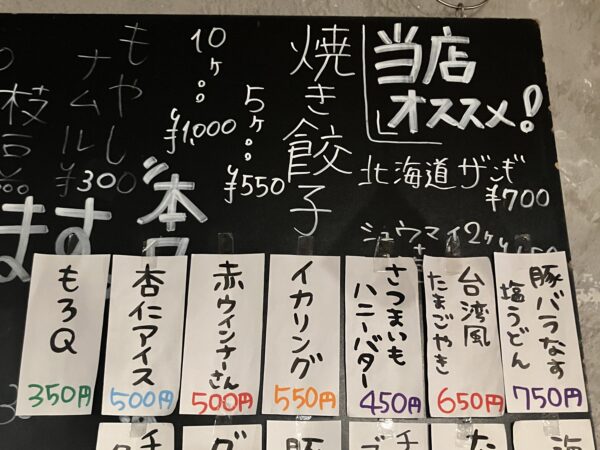 当店
オススメ!
北海道ザンギ
¥700
シュウマイ2ケ
焼き餃子
5ケ
¥550
10ケ
¥1,000
もやし
ナムル
¥300
ます
豚バラなす
塩うどん
750円
台湾風
たまごやき
650円
さつまいも
ハニーバター
450円
イカリング
550円
赤ウインナーさん
500円
杏仁アイス
500円
もろQ
350円